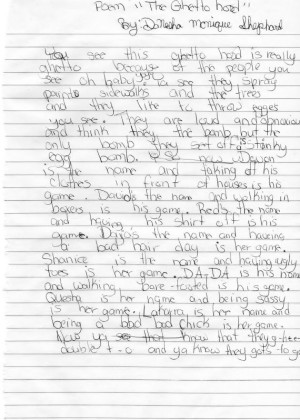 Poem "The Ghetto hood"
By: Da'Nesha Monique Shephard
You see this ghetto hood is really
ghetto because of the people you
see oh baby you see they spray
paint sidewalks and the trees
and they like to throw egges
you see. They are loud and obnoxious
and think they the bomb but the
only bomb they set off a stinky
egg bomb. now Devon
is the name and taking of his
clothes in front of houses is his
game. David's the name and walking in
boxers is his game. Red's the name
and having his shirt off is his
game. the name and having
a bad hair day is her game.
Shanice is the name and having ugly
toes is her game. DA-DA is his name
and walking bare-footed is his game.
Questa is her name and being sassy
is her game. is her name and
being a bad bad chick is her game.
Now ya know that they g-hee-
double t-o and ya know they gots to go